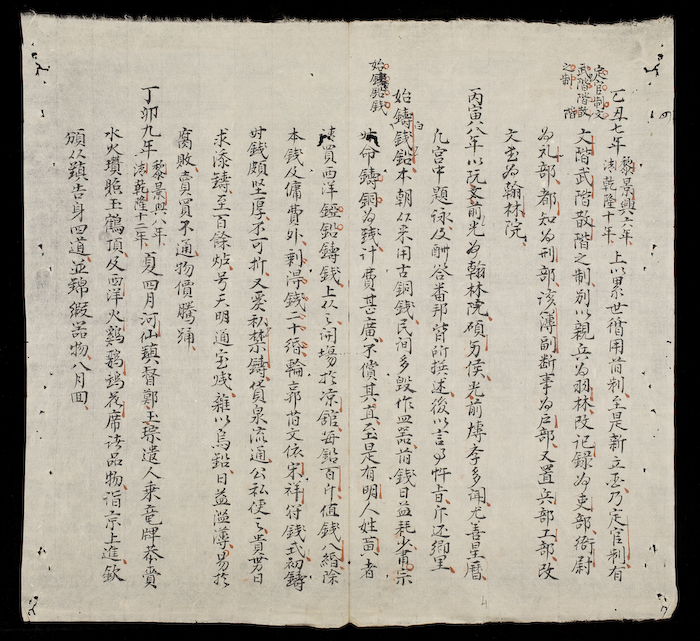 定官制文
武階散階
之制
乙丑七年黎景興六年清乾隆十年上以累世循用舊制至是新立丕乃定官制有
文階武階散階之制別以親兵為羽林改記錄為吏部衛尉
為礼部都知為刑部該簿副斷事為戶部又置兵部工部改
文書為翰林院
丙寅八年以阮光前為翰林院碩第侯光前博学多闻尤善星曆
凡宮中題詠及酬答番邦皆所撰述後以言事忤旨斥还鄉里
始鑄鉛錢
始鑄白鉛錢本朝從来用古銅錢民间多毀作皿器前錢日益耗少肅宗
命鑄銅為錢計費甚廣不償其直至是有明人姓黄者
請買西洋白鉛鑄錢上从之開場於凉館每鉛百斤值錢八緡除
本錢及傭費外剩得錢二十緡輪郭莆文依宋祥符錢式初鑄
時錢頗堅厚不可折又嚴私禁鑄貨泉流通公私便之貴势日
求添鑄至百餘炉号天明通宝錢雜以烏鉛日益濫薄易於
腐敗賣買不通物價騰踊
丁卯九年黎景興八年清乾隆十二年夏四月河仙鎮督鄭玉琮遣人乘竜牌恭賫
水火瓚瞻玉鶴頂及西洋火雞鸚鵡花席諸品物詣京上進欽
頒从鎮告身四道並錦緞器物八月回